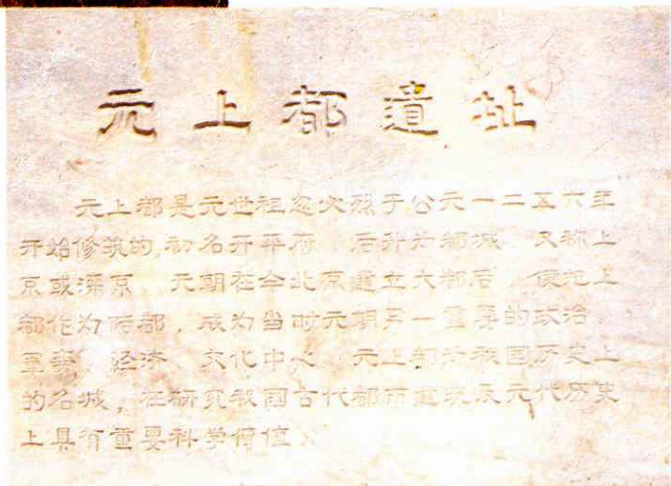 元上都遺址
元上都是元世祖忽必烈于公元一二五六年
开始修筑的,初名开平府 后升为都城 又称上
京或滦京 元朝在今北京建立大都后,便把上
都作为陪都,成为当时元朝另一重要的政治
军事、经济、文化中心 元上都为我国历史上
的名城,在研究我国古代都市建筑及元代历史
上具有重要科学价值。